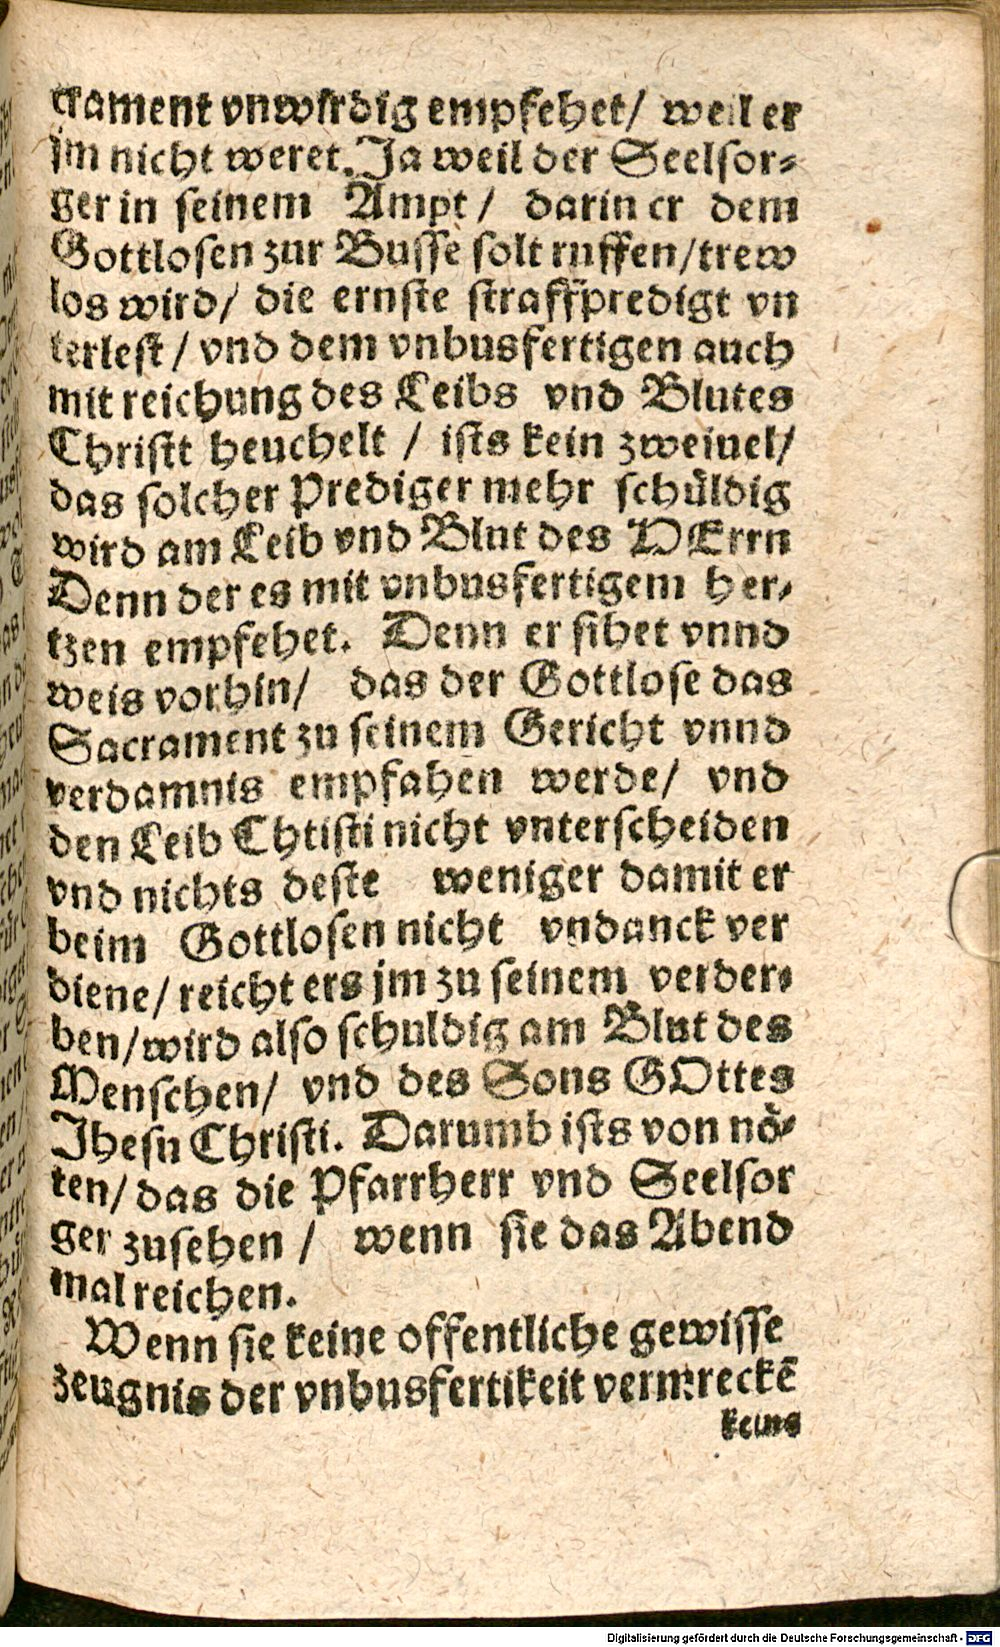 crament vnwirdig empfehet/ weil er
jm nicht weret. Ja weil der Seelsor-
ger in seinem Ampt / darin er dem
Gottlosen zur Busse solt ruffen/trew
los wird/ die ernste straffpredigt vn
terlest / vnd dem vnbusfertigen auch
mit reichung des Leibs vnd Blutes
Christt heuchelt / ists kein zweiuel/
das solcher Prediger mehr schüldig
wird am Leib vnd Blut des HErrn
Denn der es mit vnbusfertigem her-
tzen empfehet. Denn er sihet vnnd
weis vorhin/ das der Gottlose das
Sacrament zu seinem Gericht vnnd
verdamnis empfahen werde/ vnd
den Leib Chtisti nicht vnterscheiden
vnd nichts deste weniger damit er
beim Gottlosen nicht vndanck ver
diene/ reicht ers jm zu seinem verder-
ben/wird also schuldig am Blut des
Menschen/ vnd des Sons GOttes
Jhesu Christi. Darumb ists von nö-
ten/ das die Pfarrherr vnd Seelsor
ger zusehen / wenn sie das Abend
mal reichen.
Wenn sie keine offentliche gewisse
zeugnis der vnbusfertikeit vermreckē
keins
Digitalisierung gefördert durch die Deutsche Forschungsgemeinschaft - DFG